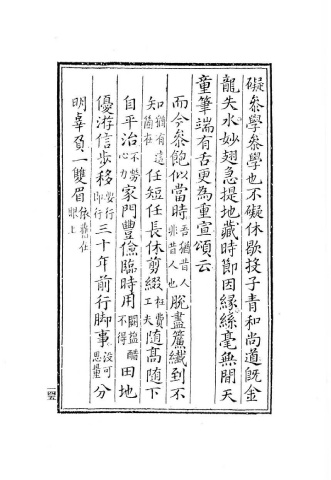 礙參學參學也不礙休歇投子青和尚道既金
龍失水妙翅急提地藏時節因緣絲毫無間天
童筆端有舌更為重宣頌云
而今參飽似當時吾猶昔人非昔人也脫盡簾纖到不
知猶有這箇在任短任長休剪綴枉費工夫隨高隨下
自平治不勞心力家門豐儉臨時用闕鹽醋不得田地
優游信步移要行即行三十年前行脚事沒可思量分
明辜負一雙眉依舊在眼上